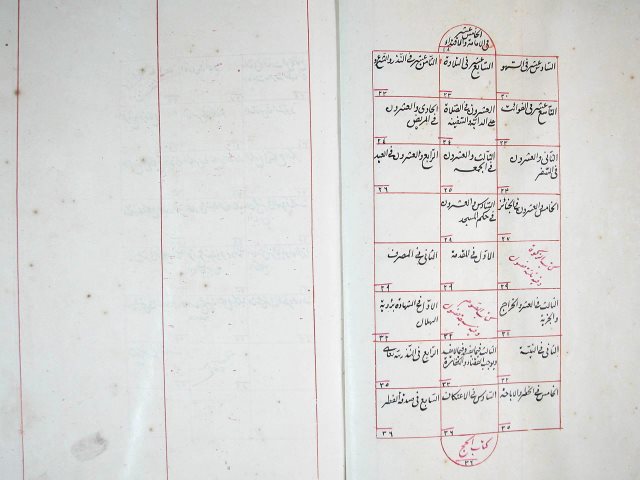 الخامس عشر
في الامامة والاقتداء
١٨
السادس عشر في السهو
٢٠
السابع عشر في التلاوة
٢٢
الثامن عشر في
٢٢
التاسع عشر في الفوائت
٢٣
العشرون في الصلاة
على الدابة والسفينة
٢٤
الحادي والعشرون
في المريض
٢٤
الثاني والعشرون
في السفر
٢٤
الثالث والعشرون
في الجمعة
٢٥
الرابع والعشرون في العيد
٢٦
الخامس والعشرون في الجنائز
٢٧
السادس والعشرون
في حكم المسجد
٢٨
كتاب الزكوة
٢٩
الاول في المقدمة
٢٩
الثاني في المصرف
٢٩
الثالث في العشر والخراج
والجزية
٣١
كتاب الصوم
٣٢
الاول في الشهادة برؤية
الهلال
٣٢
الثاني في النية
٣٢
الثالث فيما يفسد وفيما لا يفسد
٣٣
الرابع في النذر
٣٥
الخامس في الحظر والاباحة
٣٥
السادس في الاعتكاف
٣٦
السابع في صدقة الفطر
٣٦
كتاب الحج
٣٦